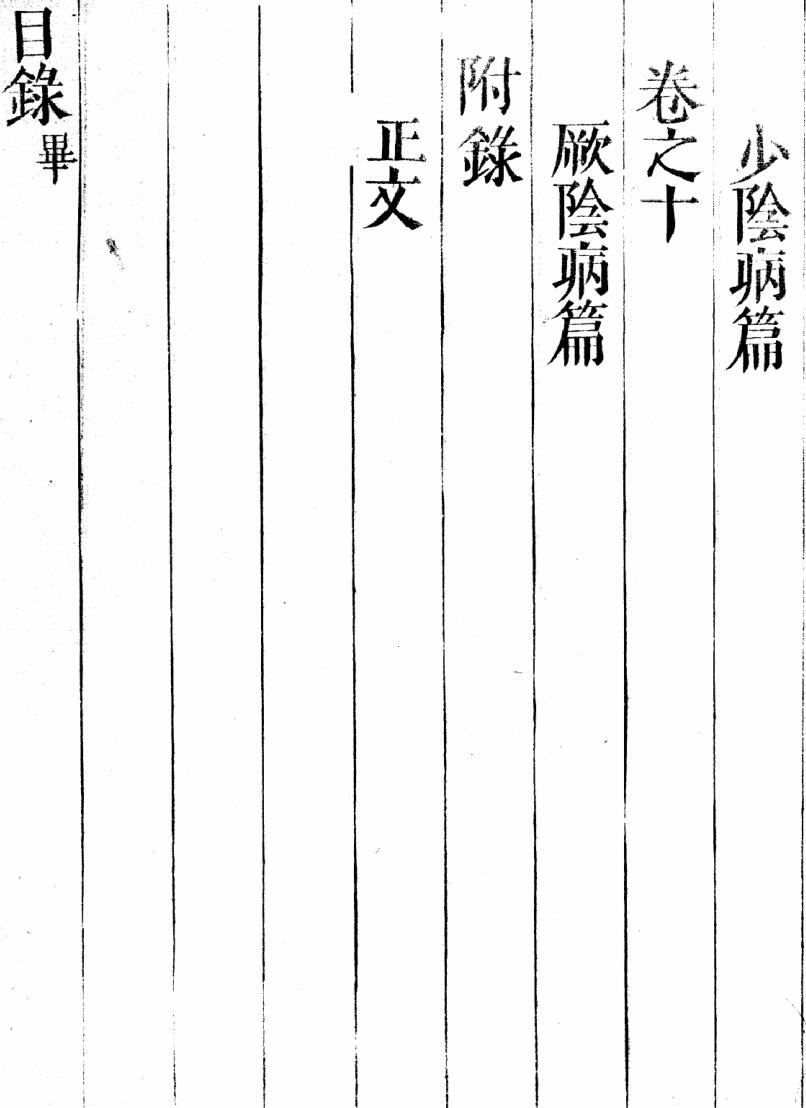 少陰病篇
卷之十
厥陰病篇
附錄
正文
目錄畢